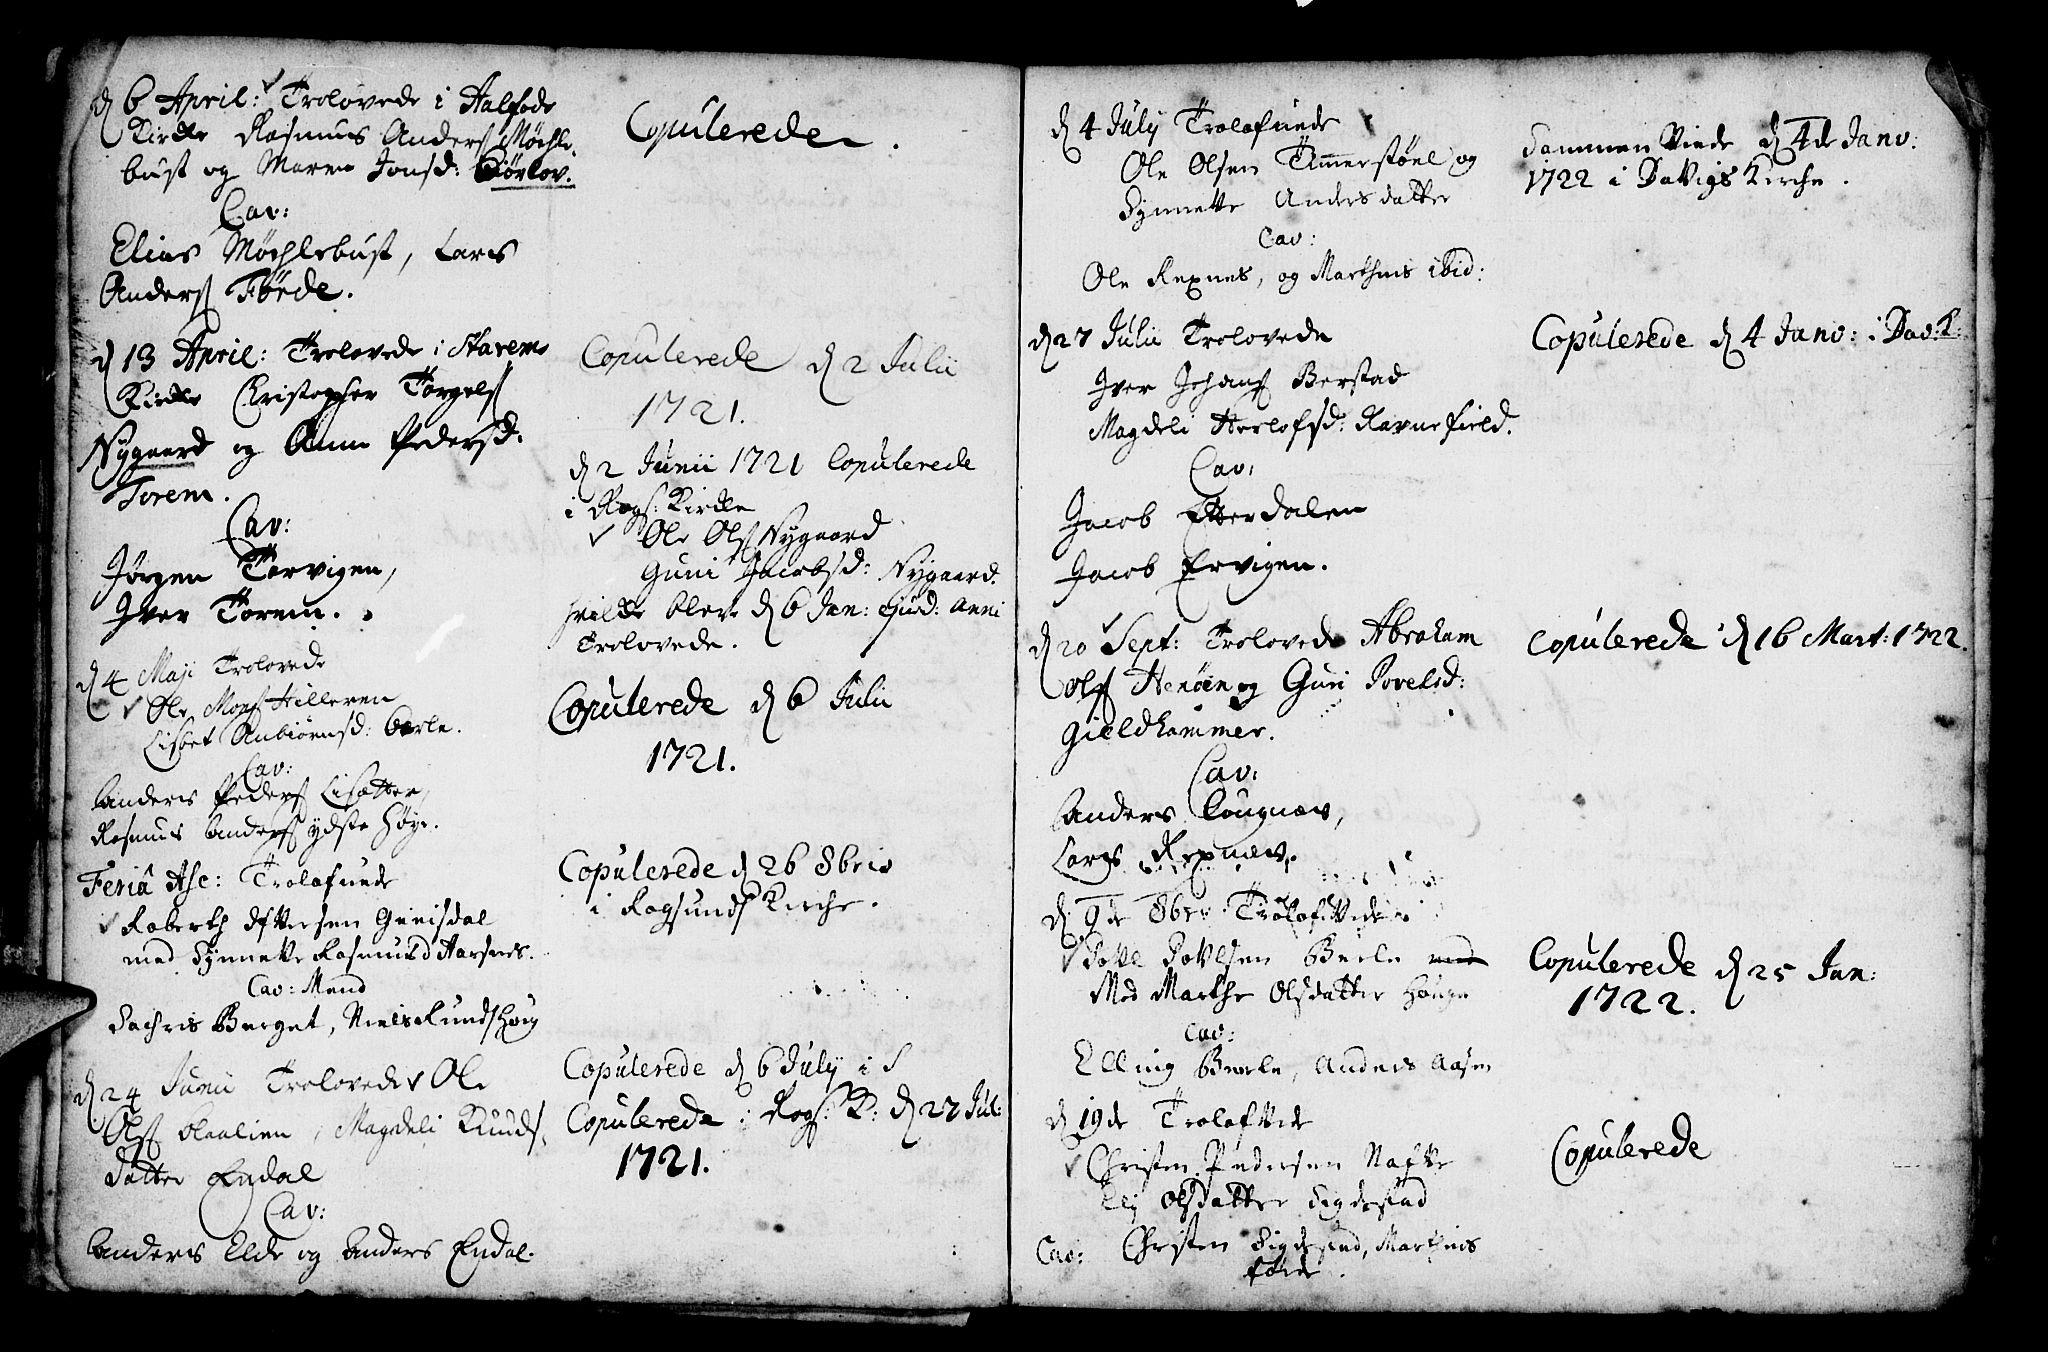 d 6 April: Trolovede i Aalfode
Kirke Rasmus Anders Møchle
bust og Maren Jonsd: Giørlov.
Cav:
Elias Møchlebust, Lars
Anders Førde.
d 13 April: Trolovede i Starems
Kirke Christopher Torgels
Nygaard og Anne Pedersd:
Torem.
Cav:
Jørgen Torvigen,
Iver Torem.
d 4 Maji Trolovede
Ole Mons Hilleren
Lisbet Anbiørnsd: Berle.
Cav:
Anders Peders Lisætter,
Rasmus Anders ydste Høye.
Feriâ Asc: Trolofvede
Roberth Iffversen Gneisdal
med Synnette Rasmusd Aarsnes.
Cav: Mend
Sachris Berget, Niels Rundshoug
d 24 Junii Trolovede Ole
Ols Aaalien, Magdeli Knuds
datter Endal
Cav:
Anders Elde og Anders Endal.
Copulerede.
Copulerede d 2 Julii
1721.
d 2 Junii 1721 Copulerede
i Rogs: Kirke
Ole Ols Nygaard
Guni Jacobsd: Nygaard.
hvilke bleve d 6 Jan: ejusd: Anni
Trolovede.
Copulerede d 6 Julii
1721.
Copulerede d 26 8bris
i Rogsunds Kirche.
Copulerede d 6 July i S
Copulerede i Rogs: K: d 27 Jul:
1721.
d 4 July Trolofvede
Ole Olsen Tammerstøel og
Synnette Andersdatter
Cav:
Ole Rexnes, og Marthus ibid:
d 27 Julii Trolovede
Iver Johans Berstad
Magdeli Herlofsd: Ravnefield.
Cav:
Jacob Etterdalen
Jacob Ervigen.
d 20 Sept: Trolovede Abraham
Ols Henøen og Guri Povelsd:
Gieldhammer.
Cav:
Anders Lougnæs,
Lars Rexnæs.
d 9de 8br: Trolofvede
Povel Povelsen Berle med
Med Marthe Olsdatter Houge
Cav:
Elling Berle, Anders Aasen
d 19de Trolofvede
Christen Pedersen Nafke
Elj Olsdatter Sigdestad
Cav: Christen Sigdestad, Marthus
Førde.
Sammen Viede d 4de Janv:
1722 i Davigs Kirche.
Copulerede d 4 Janv: i Dav: K:
Copulerede d 16 Mart: 1722.
Copulerede d 25 Jan:
1722.
Copulerede